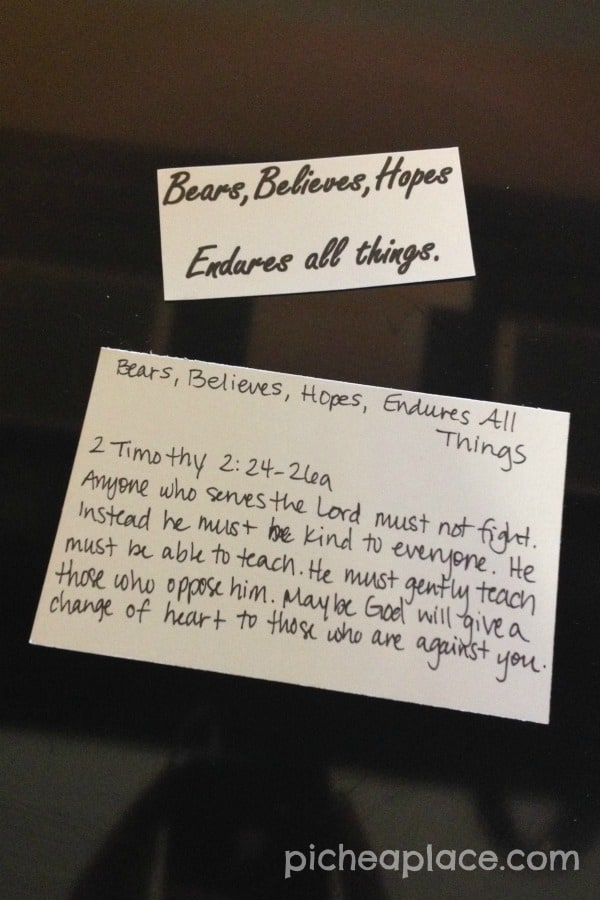 Bears, Believes, Hopes
Endures all things.
Bears, Believes, Hopes, Endures All
Things
2 Timothy 2:24-26a
Anyone who serves the Lord must not fight.
Instead he must be kind to everyone. He
must be able to teach. He must gently teach
those who oppose him. Maybe God will give a
change of heart to those who are against you.
picheaplace.com